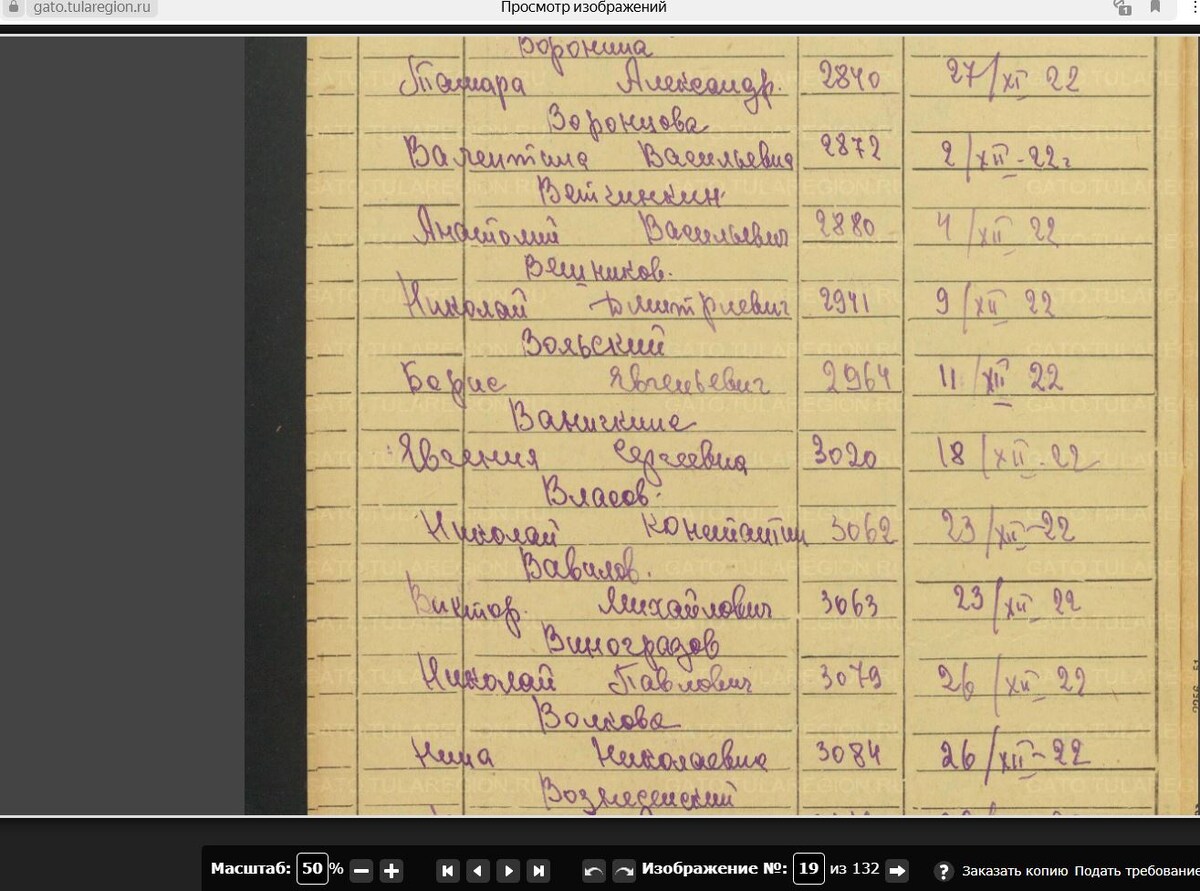 gato.tularegion.ru Просмотр изображений
Воронина
Тамара Александр. 2840 27/XI 22
Воронцова
Валентина Васильевна 2872 2/XII-22г
Ветчинкин.
Анатолий Васильевич 2880 4/XII 22
Вешников.
Николай Дмитриевич 2941 9/XII 22
Вольский
Борис Явгеньевич 2964 11/XII 22
Явгения Сергеевна 3020 18/XII-22
Власов.
Николай Константин 3062 23/XII-22
Вавилов.
Виктор. Михайлович 3063 23/XII 22
Виноградов
Николай Павлович 3079 26/XII 22
Волкова
Нина Николаевна 3084 26/XII-22
Вознесенский
Масштаб: 50 % Изображение №: 19 из 132 ? Заказать копию Подать требовани